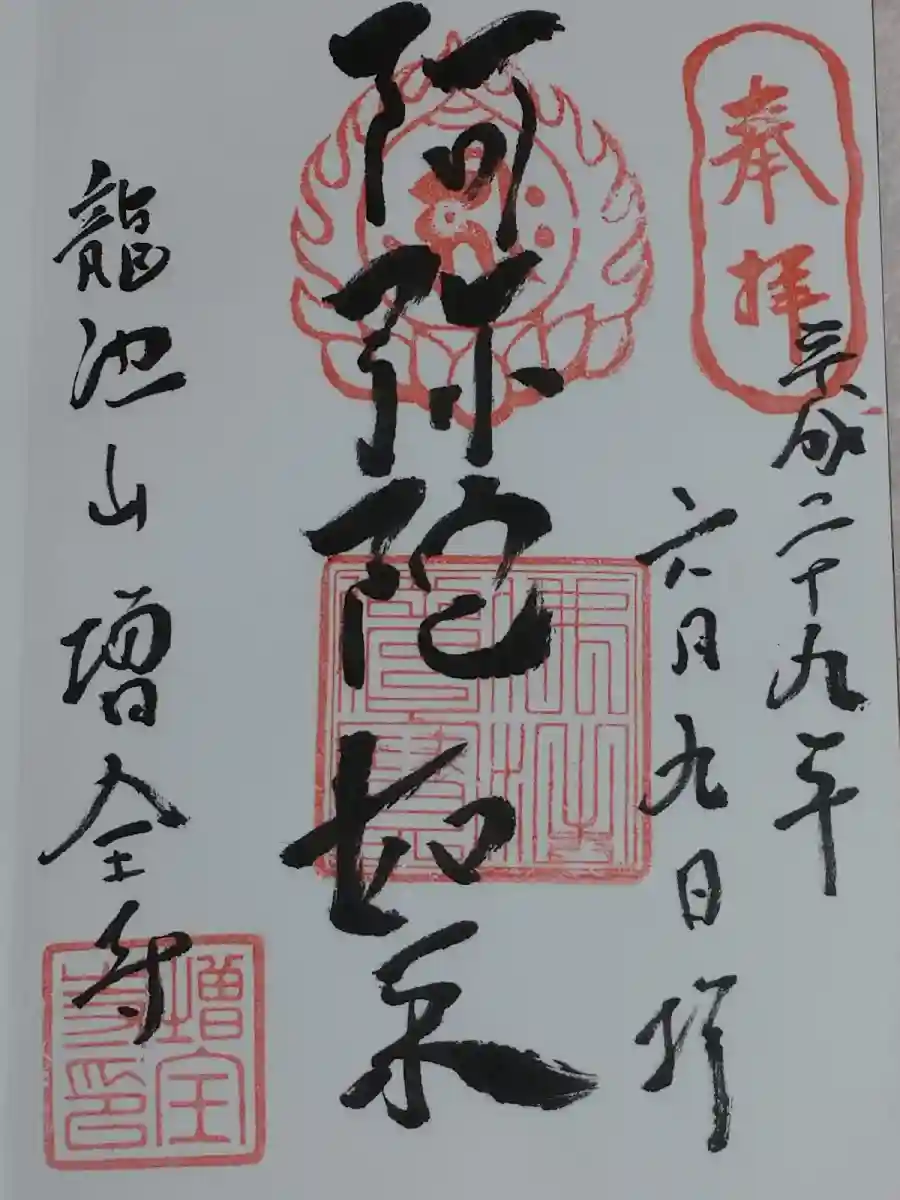 奉拝
平成二十九年
六月九日 拝
阿弥陀如来
龍池山 増全寺
増全寺印